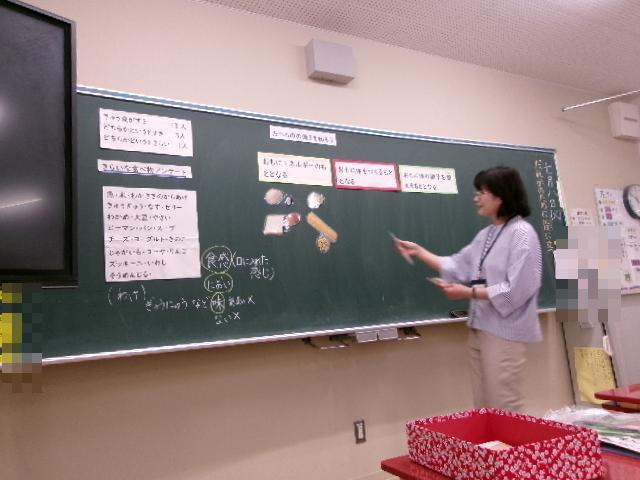 きゅう食がすき 13人
どちらかというとすき 3人
どちらかというときらい 1人
きらいな食べ物アンケート
魚・米・わかさぎのからあげ
ぎゅうにゅう・なす・ゼリー
わかめ・大豆・やさい
ピーマン・パン・スープ
チーズ・ヨーグルト・きのこ
じゃがいも・コーヤ・りんご
ズッキーニ・いわし
そうめんじる
(わけ)
ぎゅうにゅう など
食感(口に入れた
感じ)
におい
味
ない×
たべもののはたらきをしろう
おもにエネルギーのも
ととなる
おもに体をつくるもと
となる
おもに体の調子を整
えるもととなる
七月八日